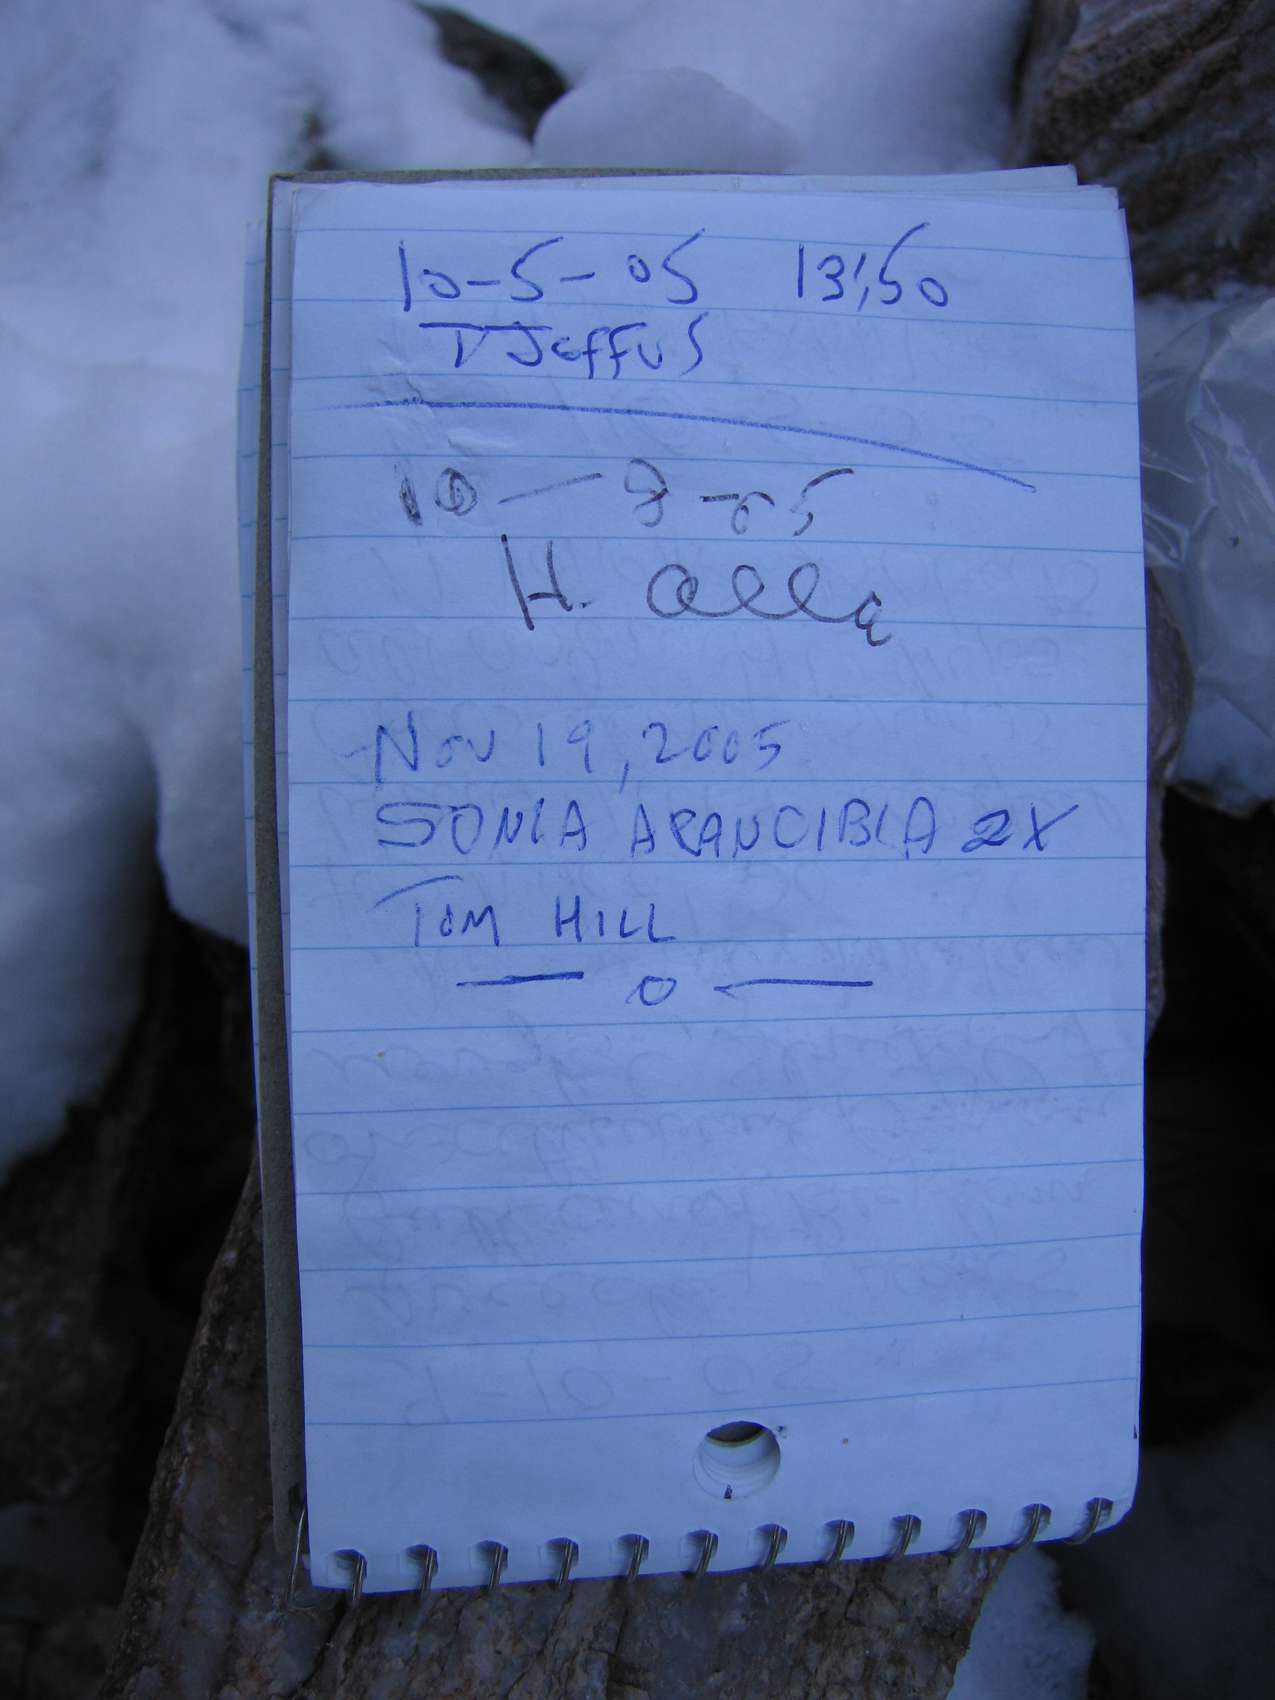 10-5-05 13:50
T Jeffus
10-8-05
H. alla
Nov 19, 2005
SONIA ARANCIBIA 2X
TOM HILL
— o —